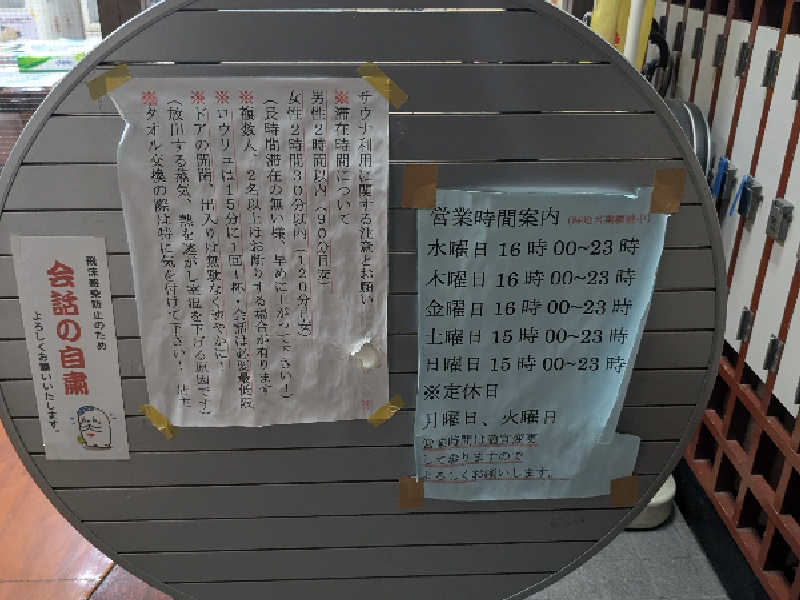 飛沫感染防止のため
会話の自粛
よろしくお願いいたします。
サウナ利用に関する注意とお願い
※滞在時間について
男性2時間以内(90分目安)
女性2時間30分以内(120分目安)
(長時間滞在の無い様、早めに上がって下さい!)
※複数人、2名以上はお断りする場合が有ります
※ロウリュは15分に1回1杯・会話は必要最低限
※ドアの開閉、出入りは無駄なく速やかに!
(放出する蒸気、熱を逃がし室温を下げる原因です)
※タオル交換の際は特に気を付けて下さい! 店主
営業時間案内
水曜日 16時00~23時
木曜日 16時00~23時
金曜日 16時00~23時
土曜日 15時00~23時
日曜日 15時00~23時
※定休日
月曜日、火曜日
営業時間は適宜変更
しておりますので
よろしくお願いします。